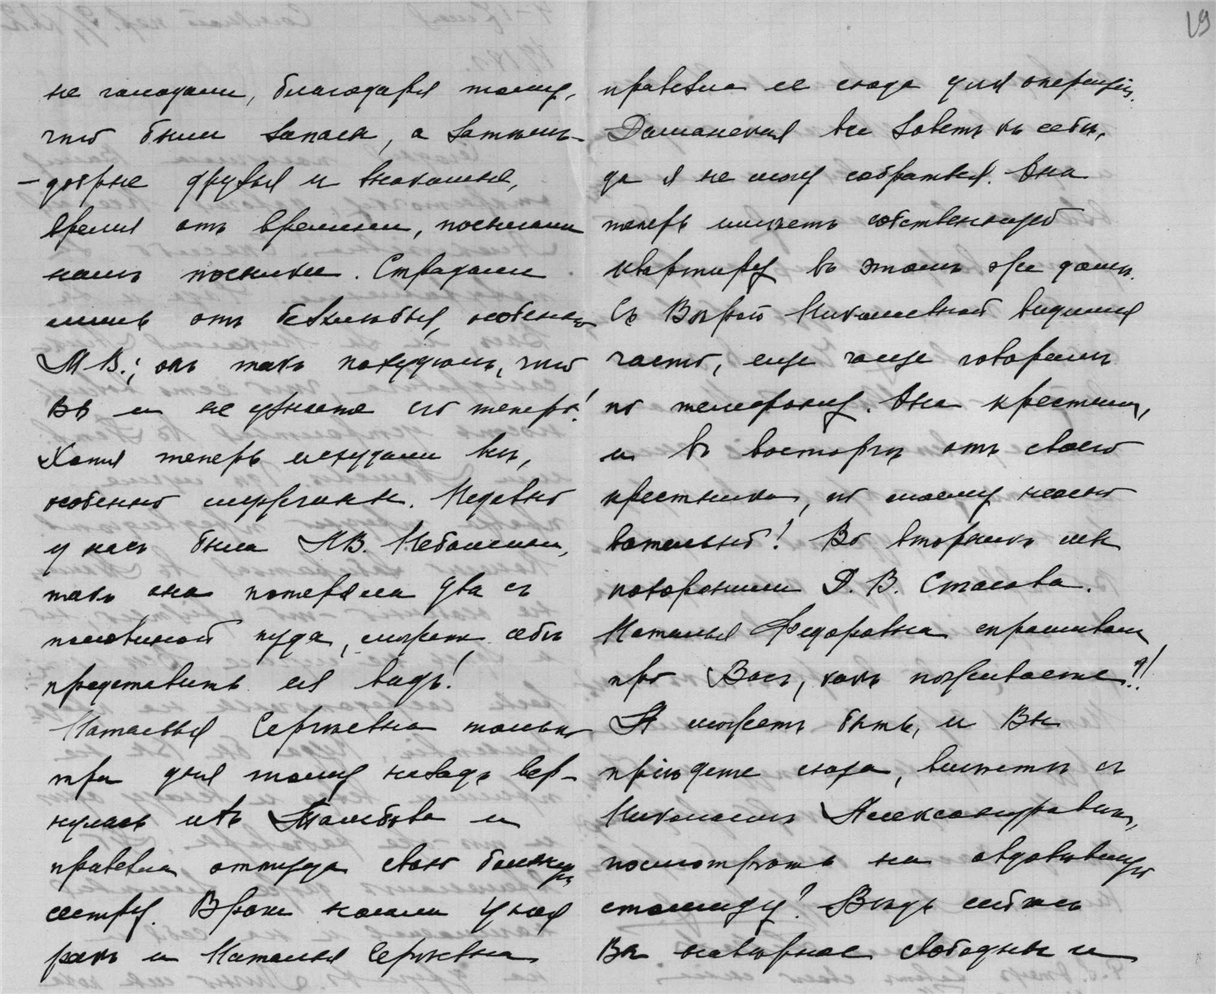 19
не голодали, благодаря тому,
что были запасы, а затѣмъ
— добрые друзья и знакомые,
время отъ времени, посылали
намъ посылки. Страдали
лишь отъ безхлѣбья, особенно
М. В.; онъ такъ похудѣлъ, что
Вы и не узнаете его теперь!
Хотя теперь исхудали всѣ,
особенно мужчины. Недавно
у насъ была Л.В. Небольсина,
такъ она потеряла два съ
половиной пуда, можете себѣ
представить ея видъ!
Наталья Сергѣевна только
три дня тому назадъ вер-
нулась изъ Тамбова и
привезла оттуда свою больную
сестру. Врачи нашли у нея
ракъ и Наталья Сергѣевна
привезла ее сюда для операціи.
Доманская все зоветъ къ себѣ,
да я не могу собраться. Она
теперь ищетъ собственную
квартиру въ этомъ же домѣ.
Съ Вѣрой Николаевной видимся
часто, еще чаще говоримъ
по телефону. Она крестила,
и въ восторгѣ отъ своего
крестника, по моему неосно
вательно! Во вторникъ мы
похоронили Д. В. Стасова.
Наталья Федоровна спрашивала
про Васъ, какъ поживаете?!!
А можетъ быть, и Вы
пріѣдете сюда, вмѣстѣ съ
Николаемъ Александровичемъ,
посмотрѣть на овдовѣвшую
столицу? Вѣдь сейчасъ
Вы навѣрное свободны и